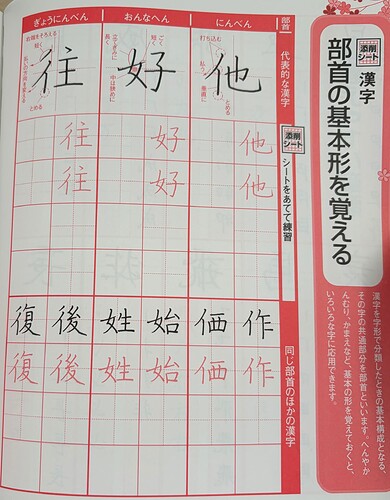 添削
シート
漢字
部首の基本形を覚える
漢字を字形で分類したときの基本構成となる、
その字の共通部分を部首といいます。へんやか
んむり、かまえなど、基本の形を覚えておくと、
いろいろな字に応用できます。
部首
代表的な漢字
添削
シート
シートをあてて練習
同じ部首のほかの漢字
にんべん
打ち込む
払う
垂直に
とめる
他
他
他
作
価
作
価
おんなへん
ごく
短く
長く
中は狭めに
好
好
好
始
姓
始
姓
ぎょうにんべん
右端をそろえる
短く
とめる
往
往
往
後
復
後
復